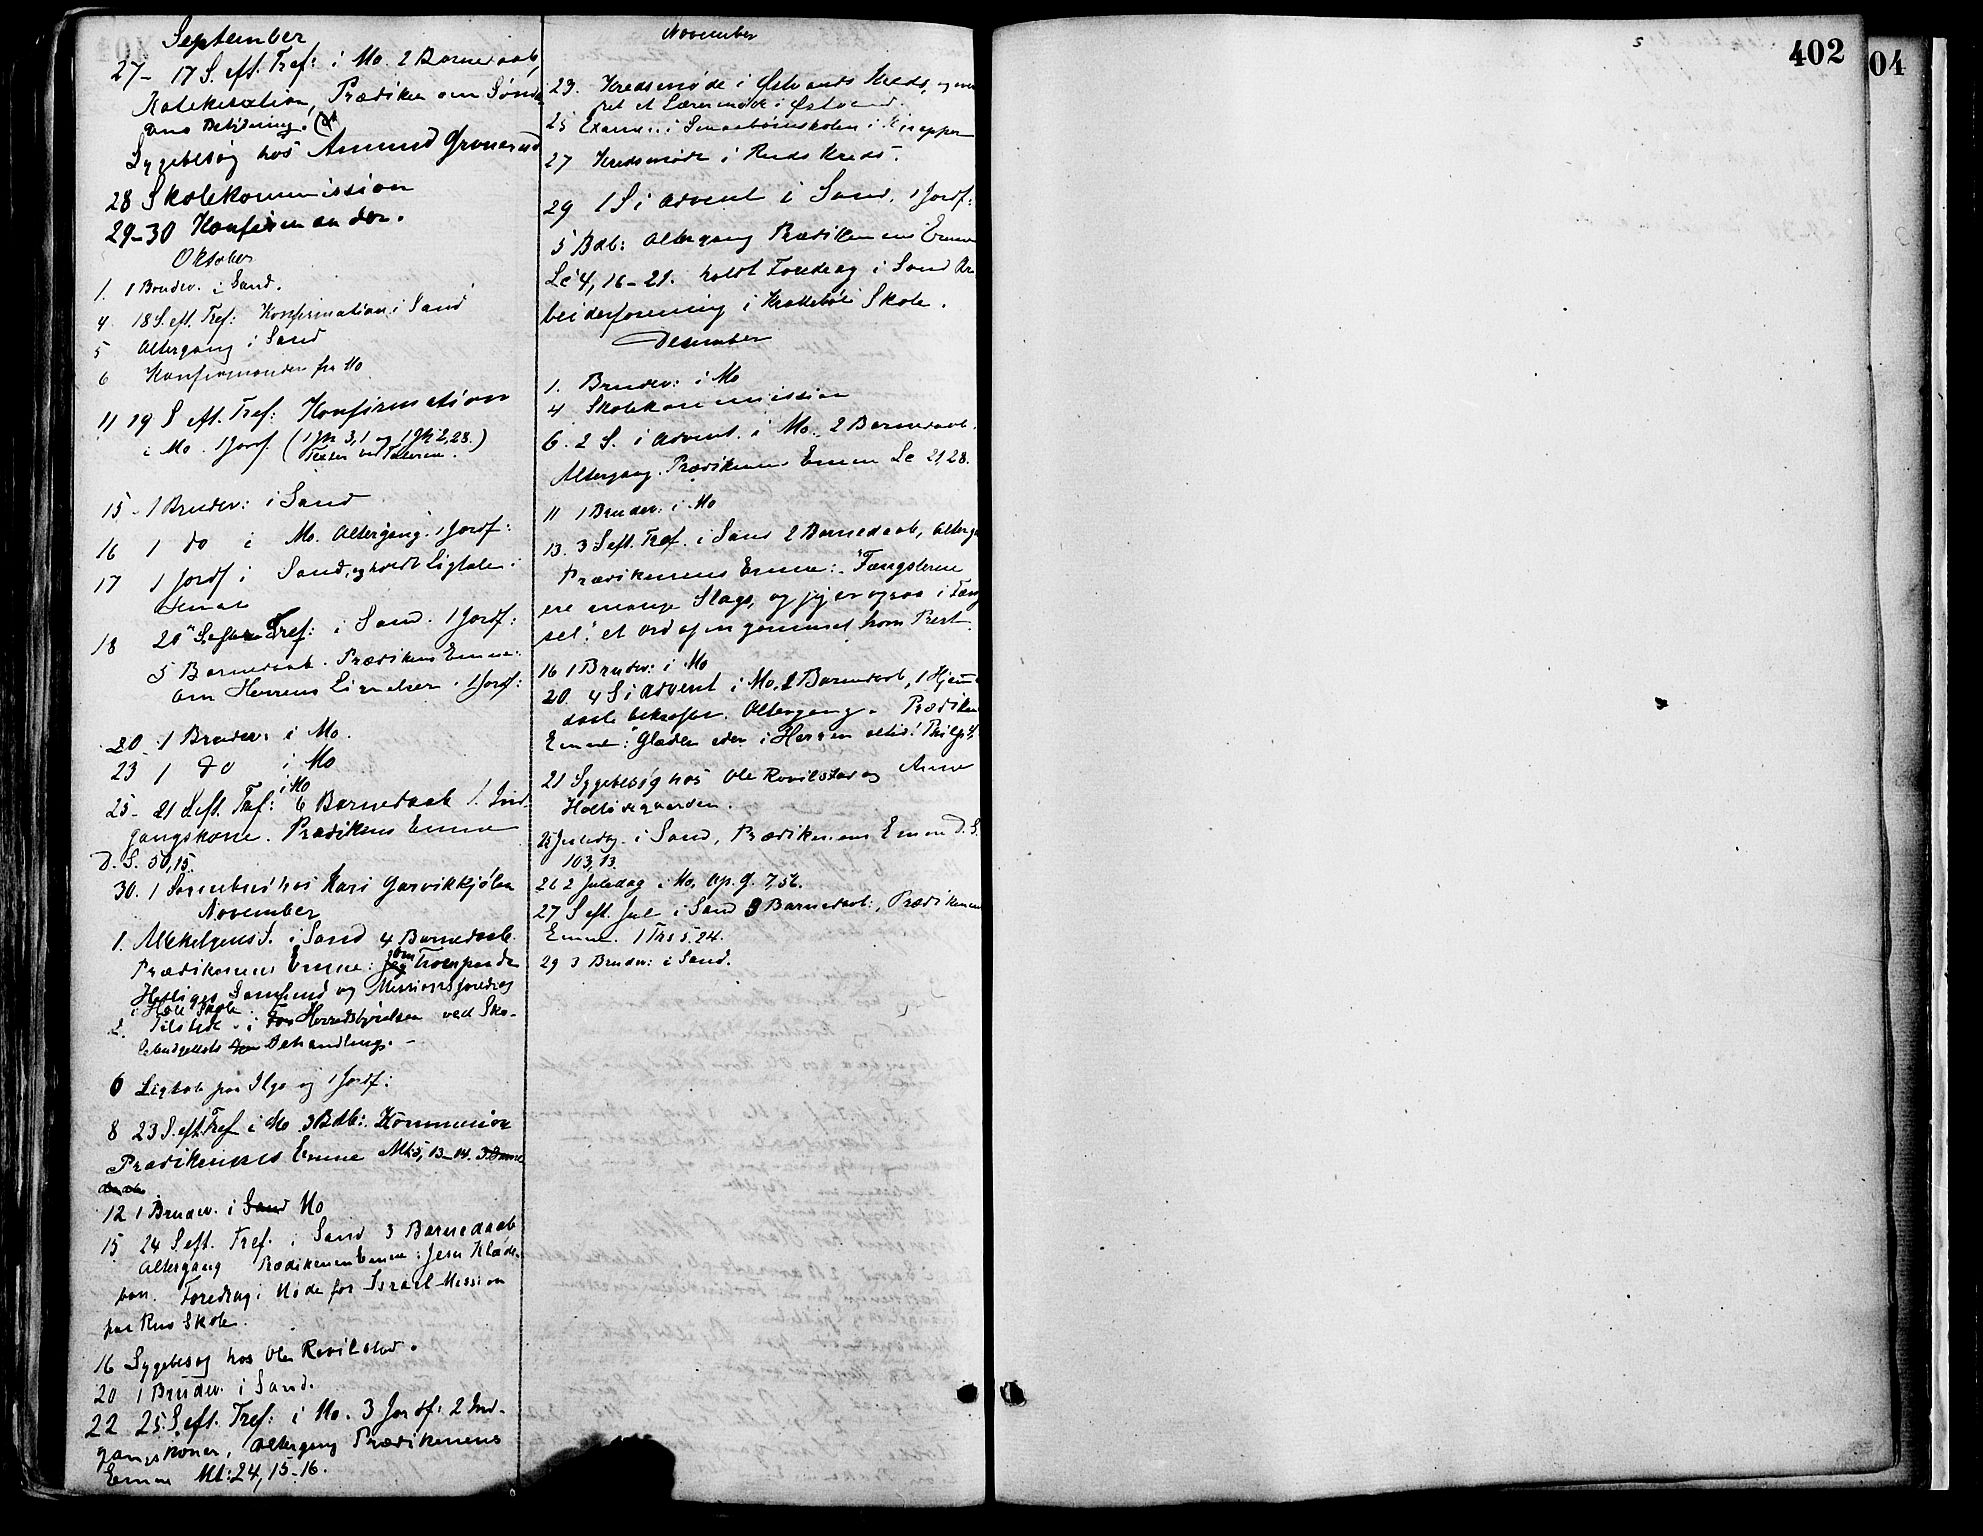 September
27- 17 S. eft. Tref: i Mo. 2 Barnedaab,
Katekisation, Prædiken om
Betydning.
Sygebesøg hos Amund Grønerud
28 Skolekommission
29-30 Konfirmander.
Oktober
1. 1 Brudev. i Sand.
4. 18 S. eft. Tref: Konfirmation i Sand
5 Altergang i Sand
6 Konfirmander fra Mo
11 19 S eft. Tref: Konfirmation
i Mo. 1 Jordf. (1 Jh 3,1 og 1 Jh 2,28.)
Texter ved Talerne.
15- 1 Brudev: i Sand
16 1 do i Mo. Altergang. 1 Jordf:
17 1 Jordf i Sand, og holdt Ligtale i
18 20 S eft Tref: i Sand. 1 Jordf:
5 Barnedaab. Prædikens Emne:
om Herrens Lignelser. 1 Jordf:
20- 1 Brudev: i Mo.
23 1 do i Mo
i Mo
25- 21 S eft. Tref: 6 Barnedaab 1 Ind-
gangskone. Prædikens Emne
D. S. 50,15.
30. 1 hos Kari Garvikkjølen
November
1. Allehelgens f. i Sand 4 Barnedaab.
Prædikenens Emne: om Troen paa de
Helliges Samfund og Missionsforedrag
i Skole.
2. Tilstede i Herredsstyrelsen ved Sko-
lebudgettets Behandling. -
6 Ligtale paa Ilge og 1 Jordf:
8 23 S. eft Tref i Mo 3 Bdb: Kommunion
Prædikenens Emne Mt 5, 13-14. 3 Barne
daabe
12 1 Brudev. i Sand Mo
15 24 S. eft. Tref. i Sand 3 Barnedaab
Altergang Prædikenens Emne: Jesu Klæde-
bon. Foredrag i Møde for Israel Mission
paa Rus Skole.
16 Sygebesøg hos Ole Revilstad.
20 1 Brudev. i Sand.
22 25 S. eft. Tref: i Mo. 3 Jordf: 2 Ind-
gangskoner, Altergang Prædikenens
Emne Mt: 24, 15-16.
November
23. Kredsmøde i Østvands Kreds, og
et Lærermøde i Østvand.
25 Examen i Smaabørnskolen i Knapper
27 Kredsmøde i Ruds Kreds.
29 1 S i Advent i Sand. 1 Jordf:
5 Bdb: Altergang Prædikenens Emne
Lc 4, 16-21. holdt Foredrag i Sand Ar
beiderforening i Krattebøl Skole.
Desember
1. Brudev: i Mo
4 Skolekommission
6. 2 S. i Advent. i Mo. 2 Barnedaab.
Altergang. Prædikenens Emne Lc 21,28.
11 1 Brudev: i Mo
13. 3 S eft. Tref. i Sand 2 Barnedaab, Alterga
Prædikenens Emne: "Fængslerne
ere mange Slags, og jeg er ogsaa i Fæng
sel". et Ord af en Prest
16 1 Brudev: i Mo
20 4 S i Advent i Mo. 2 Barnedaab, 1 Hjemme
daab bekræftet. Altergang. Prædiken
Emne: "Glæder eder i Herren altid! Philip 4,
21 Sygebesøg hos Ole Revilstad og Anne
25 Juledag i Sand, Prædikenens Emne D. S.
103,13.
26 2 Juledag i Mo, Ap. G. 7,56.
27 S eft. Jul i Sand 3 Barnedaab:, Prædikenens
Emne. 1 Ths 5,24.
29 3 Brudev: i Sand.
402
04